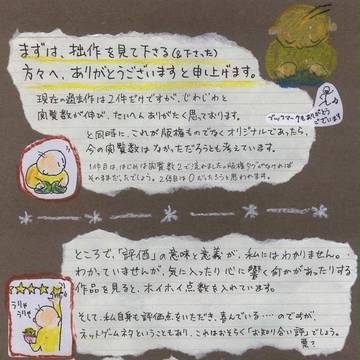 まずは、拙作を見て下さる(&下さった)
方々へ、ありがとうございますと申し上げます。
現在の過去作は2件だけですが、じわじわと
閲覧数が伸び、たいへんありがたく思っております。
ブックマークもありがとう
ございます
と同時に、これが版権ものでなくオリジナルであったら、
今の閲覧数はなかっただろうとも考えています。
1件目は、はじめは閲覧数2で泣きました。版権タグがなければ
そのままだったでしょう。2件目は0だったろうと思われます。
ところで、「評価」の意味と意義が、私にはわかりません。
わかっていませんが、気に入ったり心に響く何かがあったりする
作品を見ると、ホイホイ点数を入れています。
うりゃ
うりゃ
そして、私自身も評価点をいただき、喜んでいる……のですが、
ネットゲームネタということもあり、これはおそらく「お知り合い評」でしょう。